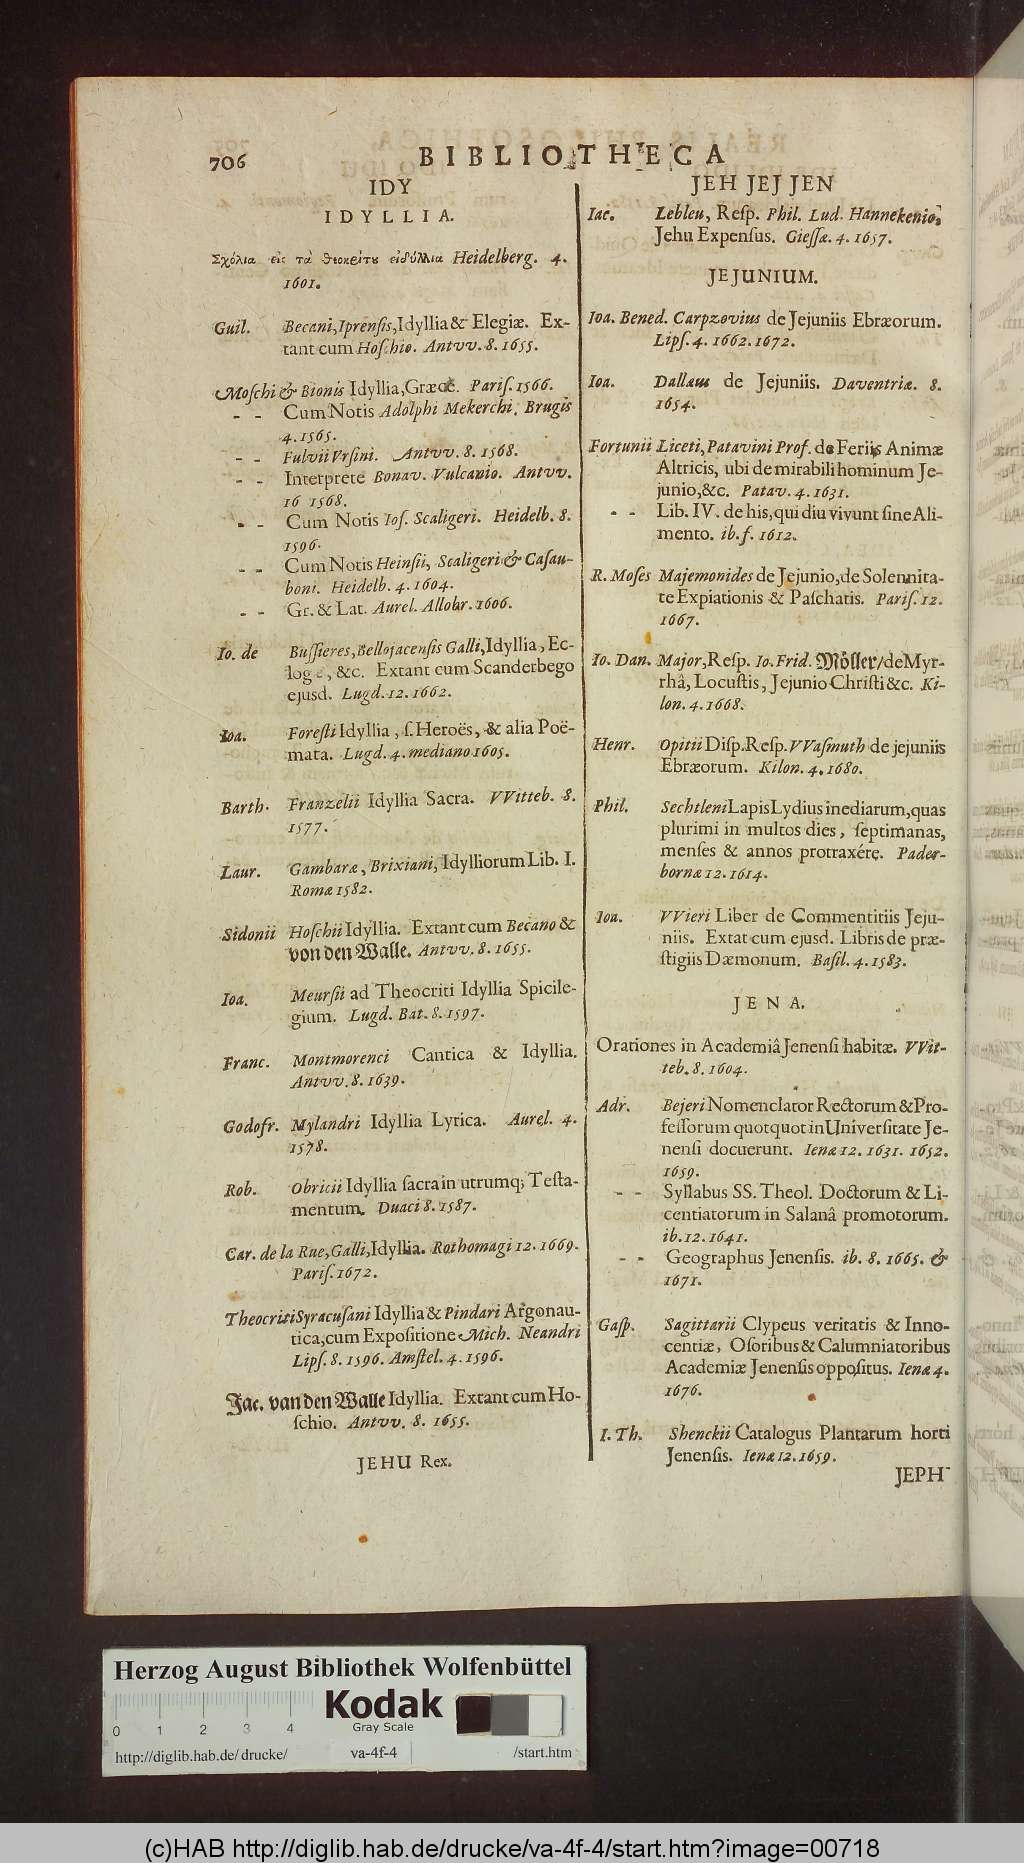 706
BIBLIOTHECA
IDY
IDYLLIA.
Σχόλια εἰς τὰ Θεοκρίτου εἰδύλλια Heidelberg. 4.
1601.
Guil. Becani, Iprensis, Idyllia & Elegiæ. Ex-
tant cum Hoschio. Antvv. 8. 1655.
Moschi & Bionis Idyllia, Græcè. Paris. 1566.
- - Cum Notis Adolphi Mekerchi. Brugis
4. 1565.
- - Fulvii Vrsini. Antvv. 8. 1568.
- - Interprete Bonav. Vulcanio. Antvv.
16 1568.
- - Cum Notis Ios. Scaligeri. Heidelb. 8.
1596.
- - Cum Notis Heinsii, Scaligeri & Casau-
boni. Heidelb. 4. 1604.
- - Gr. & Lat. Aurel. Allobr. 1606.
Io. de Bussieres, Bellojacensis Galli, Idyllia, Ec-
loge, &c. Extant cum Scanderbego
ejusd. Lugd. 12. 1662.
Ioa. Foresti Idyllia, s. Heroës, & alia Poë-
mata. Lugd. 4. mediano 1605.
Barth. Franzelii Idyllia Sacra. VVitteb. 8.
1577.
Laur. Gambaræ, Brixiani, Idylliorum Lib. I.
Romæ 1582.
Sidonii Hoschii Idyllia. Extant cum Becano &
von den Walle. Antvv. 8. 1655.
Ioa. Meursii ad Theocriti Idyllia Spicile-
gium. Lugd. Bat. 8. 1597.
Franc. Montmorenci Cantica & Idyllia.
Antvv. 8. 1639.
Godofr. Mylandri Idyllia Lyrica. Aurel. 4.
1578.
Rob. Obricii Idyllia sacra in utrumq; Testa-
mentum. Duaci 8. 1587.
Car. de la Rue, Galli, Idyllia. Rothomagi 12. 1669.
Paris. 1672.
Theocriti Syracusani Idyllia & Pindari Argonau-
tica, cum Expositione Mich. Neandri
Lips. 8. 1596. Amstel. 4. 1596.
Jac. van den Walle Idyllia. Extant cum Ho-
schio. Antvv. 8. 1655.
JEHU Rex.
JEH JEJ JEN
Iac. Lebleu, Resp. Phil. Lud. Hannekenio,
Jehu Expensus. Giessæ. 4. 1657.
JEJUNIUM.
Ioa. Bened. Carpzovius de Jejuniis Ebræorum.
Lips. 4. 1662. 1672.
Ioa. Dallæus de Jejuniis. Daventriæ. 8.
1654.
Fortunii Liceti, Patavini Prof. de Feriis Animæ
Altricis, ubi de mirabili hominum Je-
junio, &c. Patav. 4. 1631.
- - Lib. IV. de his, qui diu vivunt sine Ali-
mento. ib. f. 1612.
R. Moses Majemonides de Jejunio, de Solennita-
te Expiationis & Paschatis. Paris. 12.
1667.
Io. Dan. Major, Resp. Io. Frid. Möller/ de Myr-
rhâ, Locustis, Jejunio Christi &c. Ki-
lon. 4. 1668.
Henr. Opitii Disp. Resp. VVasmuth de jejuniis
Ebræorum. Kilon. 4. 1680.
Phil. Sechtleni Lapis Lydius inediarum, quas
plurimi in multos dies, septimanas,
menses & annos protraxére. Pader-
bornæ 12. 1614.
Ioa. VVieri Liber de Commentitiis Jeju-
niis. Extat cum ejusd. Libris de præ-
stigiis Dæmonum. Basil. 4. 1583.
JENA.
Orationes in Academiâ Jenensi habitæ. VVit-
teb. 8. 1604.
Adr. Bejeri Nomenclator Rectorum & Pro-
fessorum quotquot in Universitate Je-
nensi docuerunt. Ienæ 12. 1631. 1652.
1659.
- - Syllabus SS. Theol. Doctorum & Li-
centiatorum in Salanâ promotorum.
ib. 12. 1641.
- - Geographus Jenensis. ib. 8. 1665. &
1671.
Gasp. Sagittarii Clypeus veritatis & Inno-
centiæ, Osoribus & Calumniatoribus
Academiæ Jenensis oppositus. Ienæ 4.
1676.
I. Th. Shenckii Catalogus Plantarum horti
Jenensis. Ienæ 12. 1659.
JEPH
Herzog August Bibliothek Wolfenbüttel
0 1 2 3 4
Kodak
Gray Scale
http://diglib.hab.de/drucke/ va-4f-4 /start.htm
(c)HAB http://diglib.hab.de/drucke/va-4f-4/start.htm?image=00718